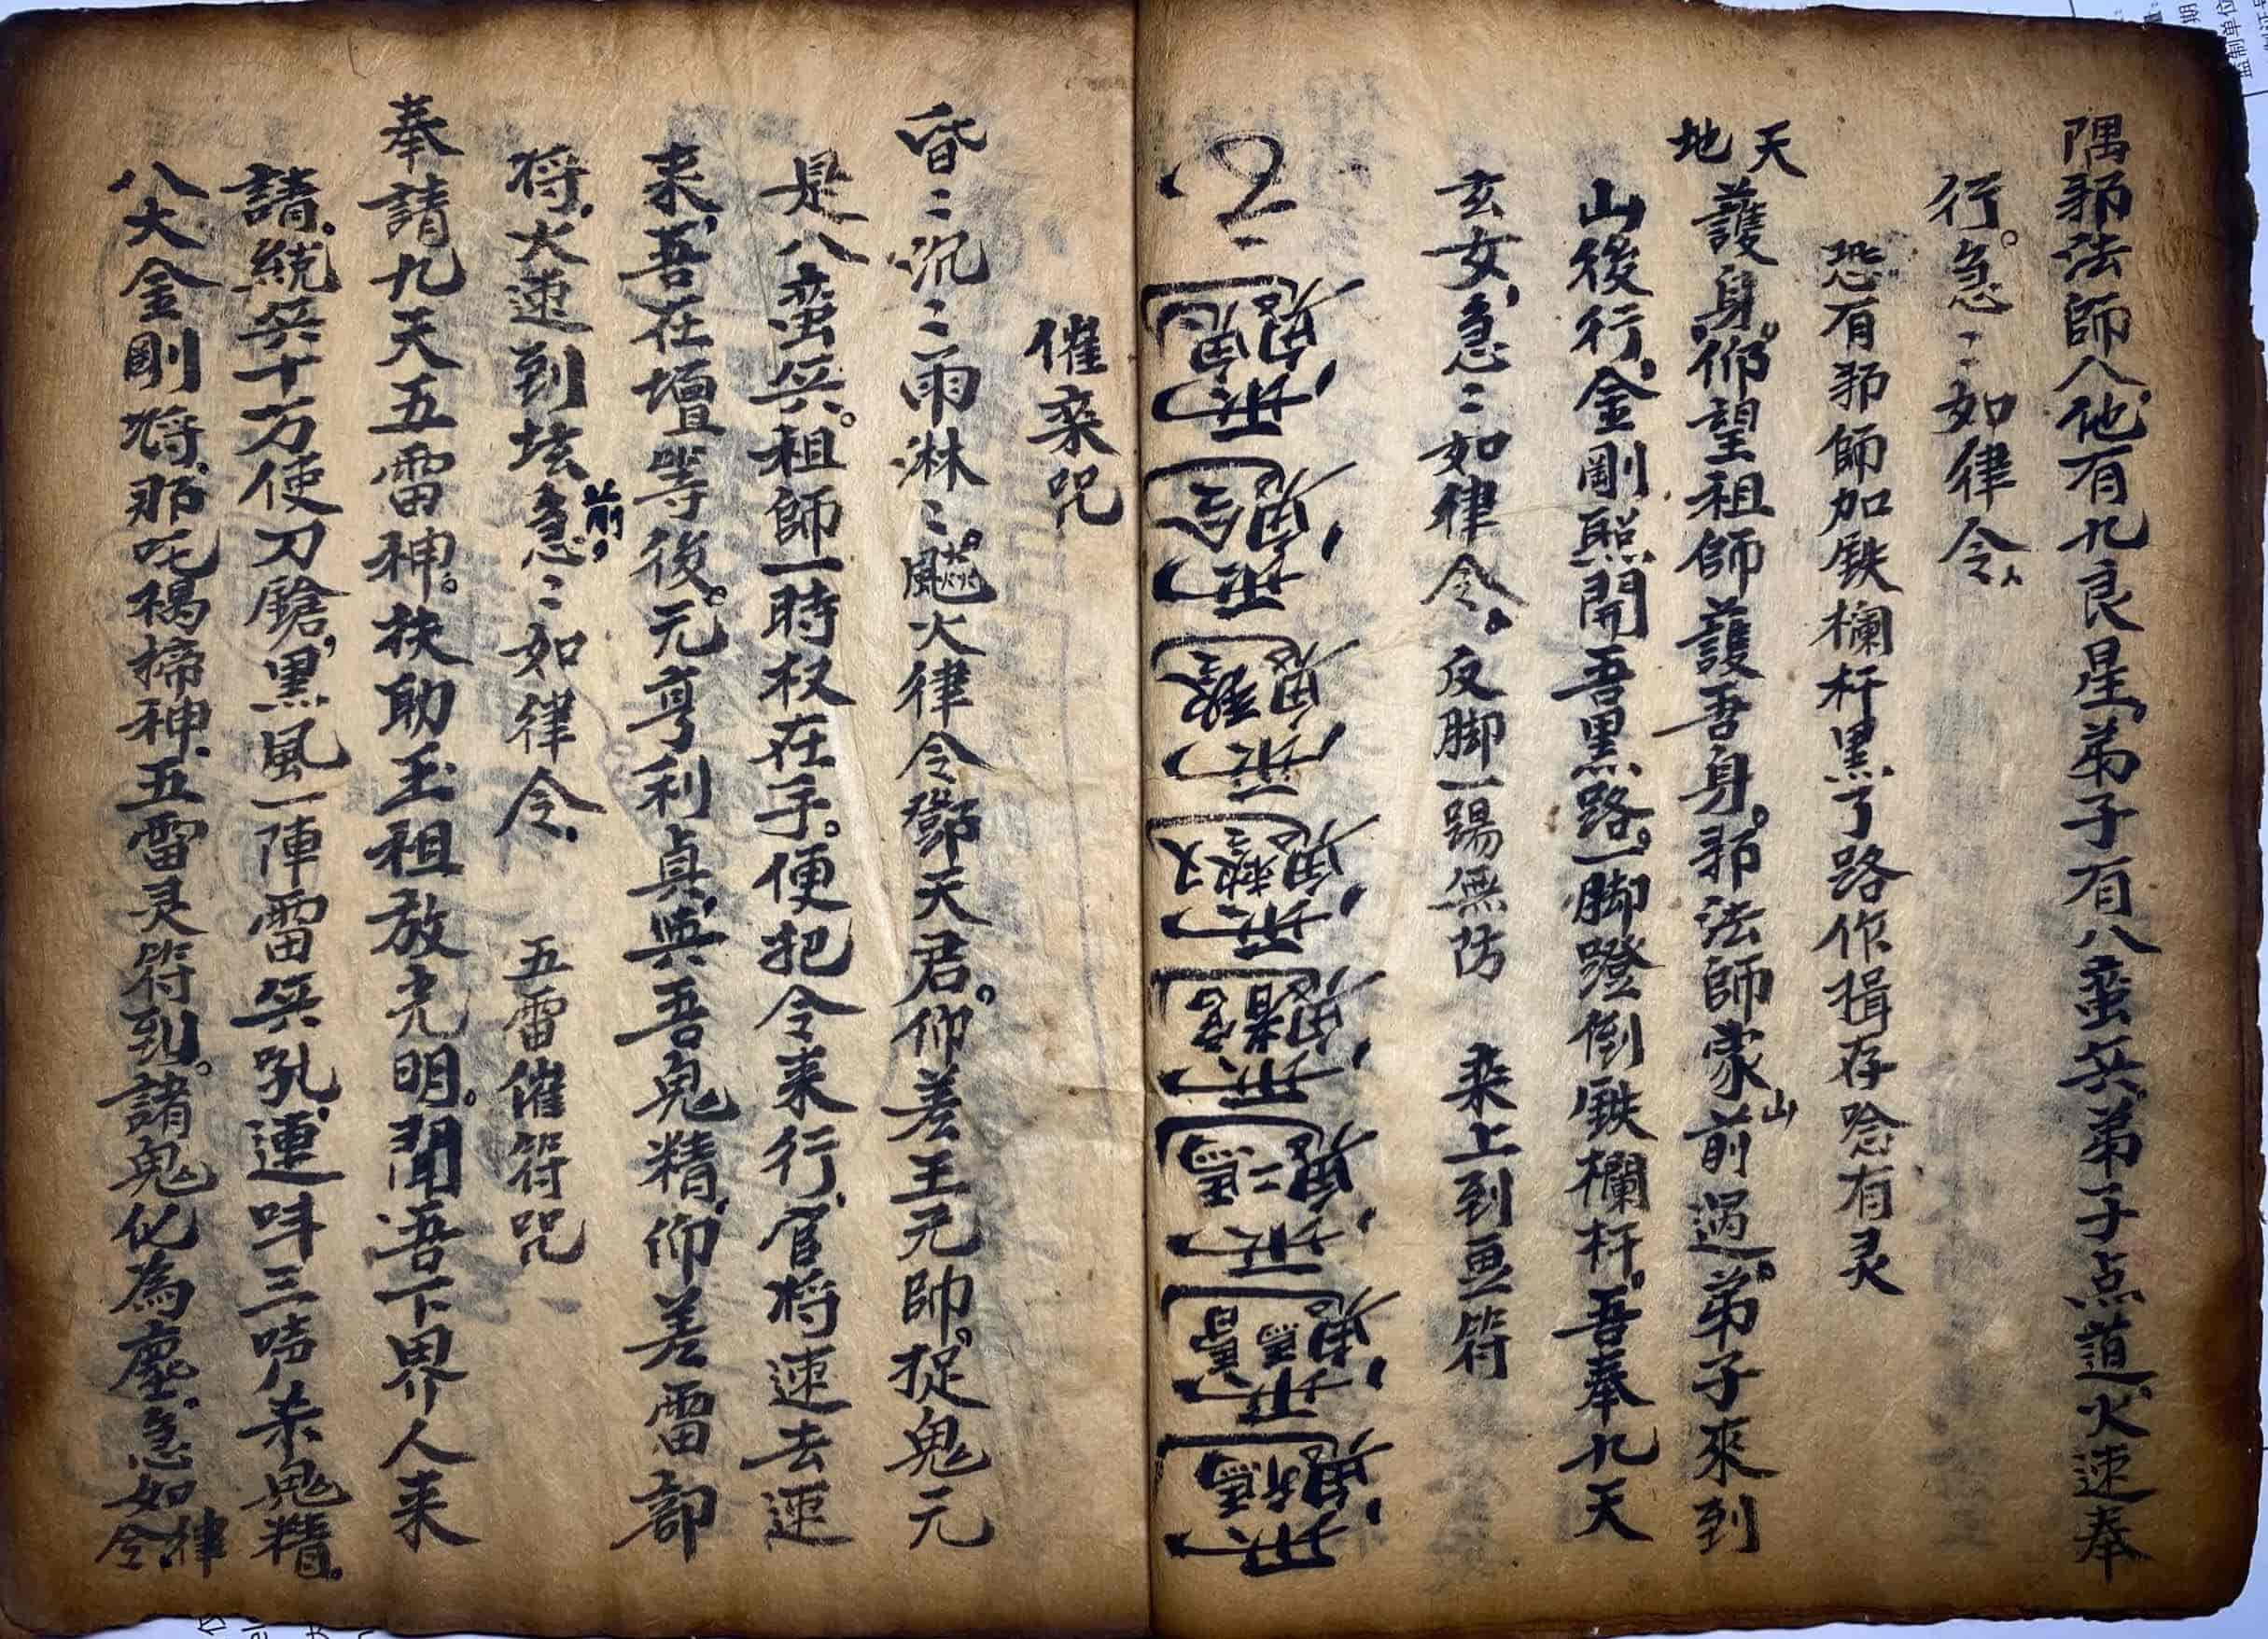 隅邪法師八他有九良星弟子有八蛮兵弟子点道火速奉
行。急〻如律令
恐有邪師加鉄欄杆黑了路作揖存唸有灵
天地護身。仰望祖師護吾身。邪法師蒙山前過。弟子來到
山後行。金剛照開吾黑路。一脚蹬倒鉄欄杆。吾奉九天
玄女急〻如律令。反脚一踢無防 桒上到画符
催桒咒
昏〻沉〻雨淋〻大律令鄧天君。仰差王元帥。捉鬼元
是八蛮兵。祖師一時权在手。便把令来行官将速去速
来吾在壇等後。元亨利貞與吾鬼精仰差雷部
将火速到坛前急〻如律令 五雷催符咒
奉請九天五雷神。扶助玉祖放光明。聞吾下界人来
請統兵十万使刀鎗黑風一陣雷兵吼連呌三声杀鬼精。
八大金剛将那吒揭掃神五雷灵符到。諸鬼化為塵急如律令